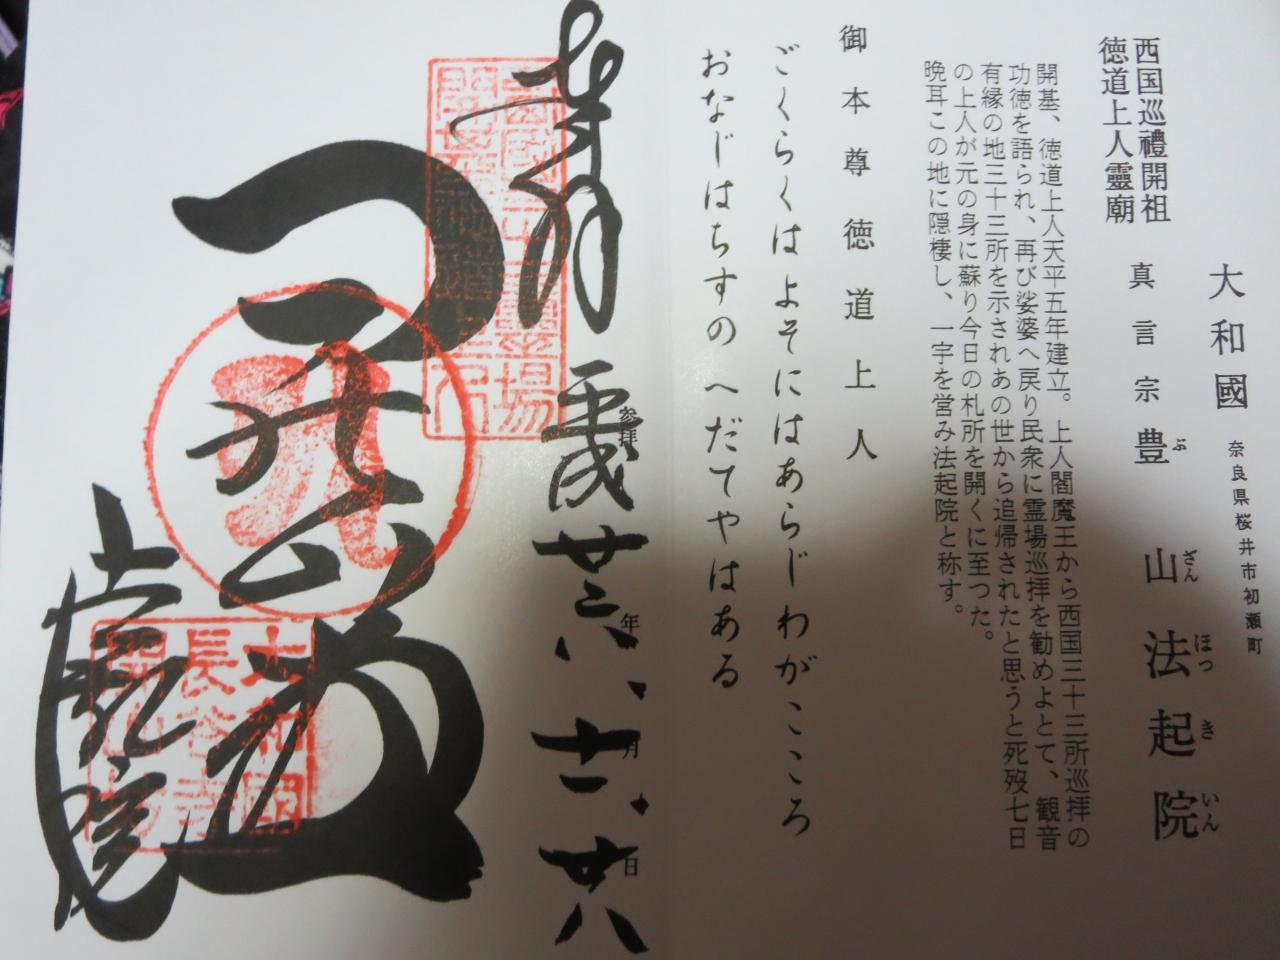 大和國 奈良県桜井市初瀬町
西国巡禮開祖
徳道上人霊廟
真言宗豊山法起院
ぶ ざん ほつ き いん
開基、徳道上人天平五年建立。上人閻魔王から西国三十三所巡拝の
功徳を語られ、再び娑婆へ戻り民衆に霊場巡拝を勧めよとて、観音
有縁の地三十三所を示されあの世から追帰されたと思うと死歿七日
の上人が元の身に蘇り今日の札所を開くに至った。
晩耳この地に隠棲し、一宇を営み法起院と称す。
御本尊徳道上人
ごくらくはよそにはあらじわがこころ
おなじはちすのへだてやはある
奉拝
参拝
平成廿六年十一月廿八日
大和國
長谷寺
開山